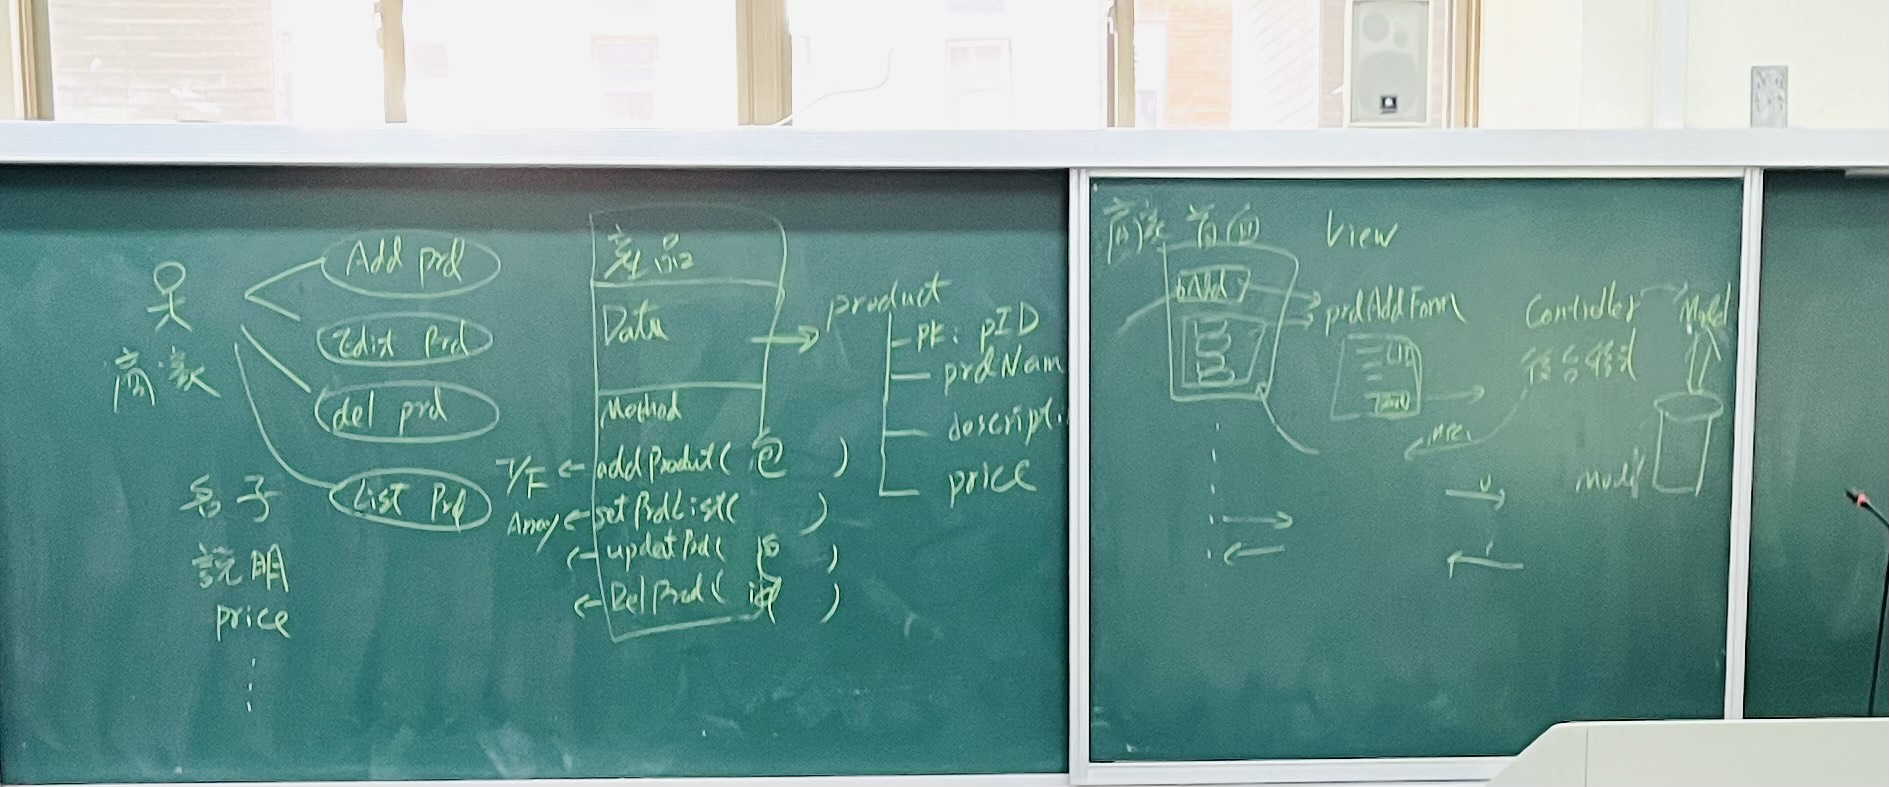 商家
Add prd
Edit Prd
del prd
List Prd
名子
說明
price
產品
Data
Method
T/F ← addProduct( 包 )
Array ← getPrdList( )
← updatPrd( 包 )
← DelProd( id )
product
PK: pID
prdNam
descripti
price
商家 首面
View
prdAddForm
Controller
Model